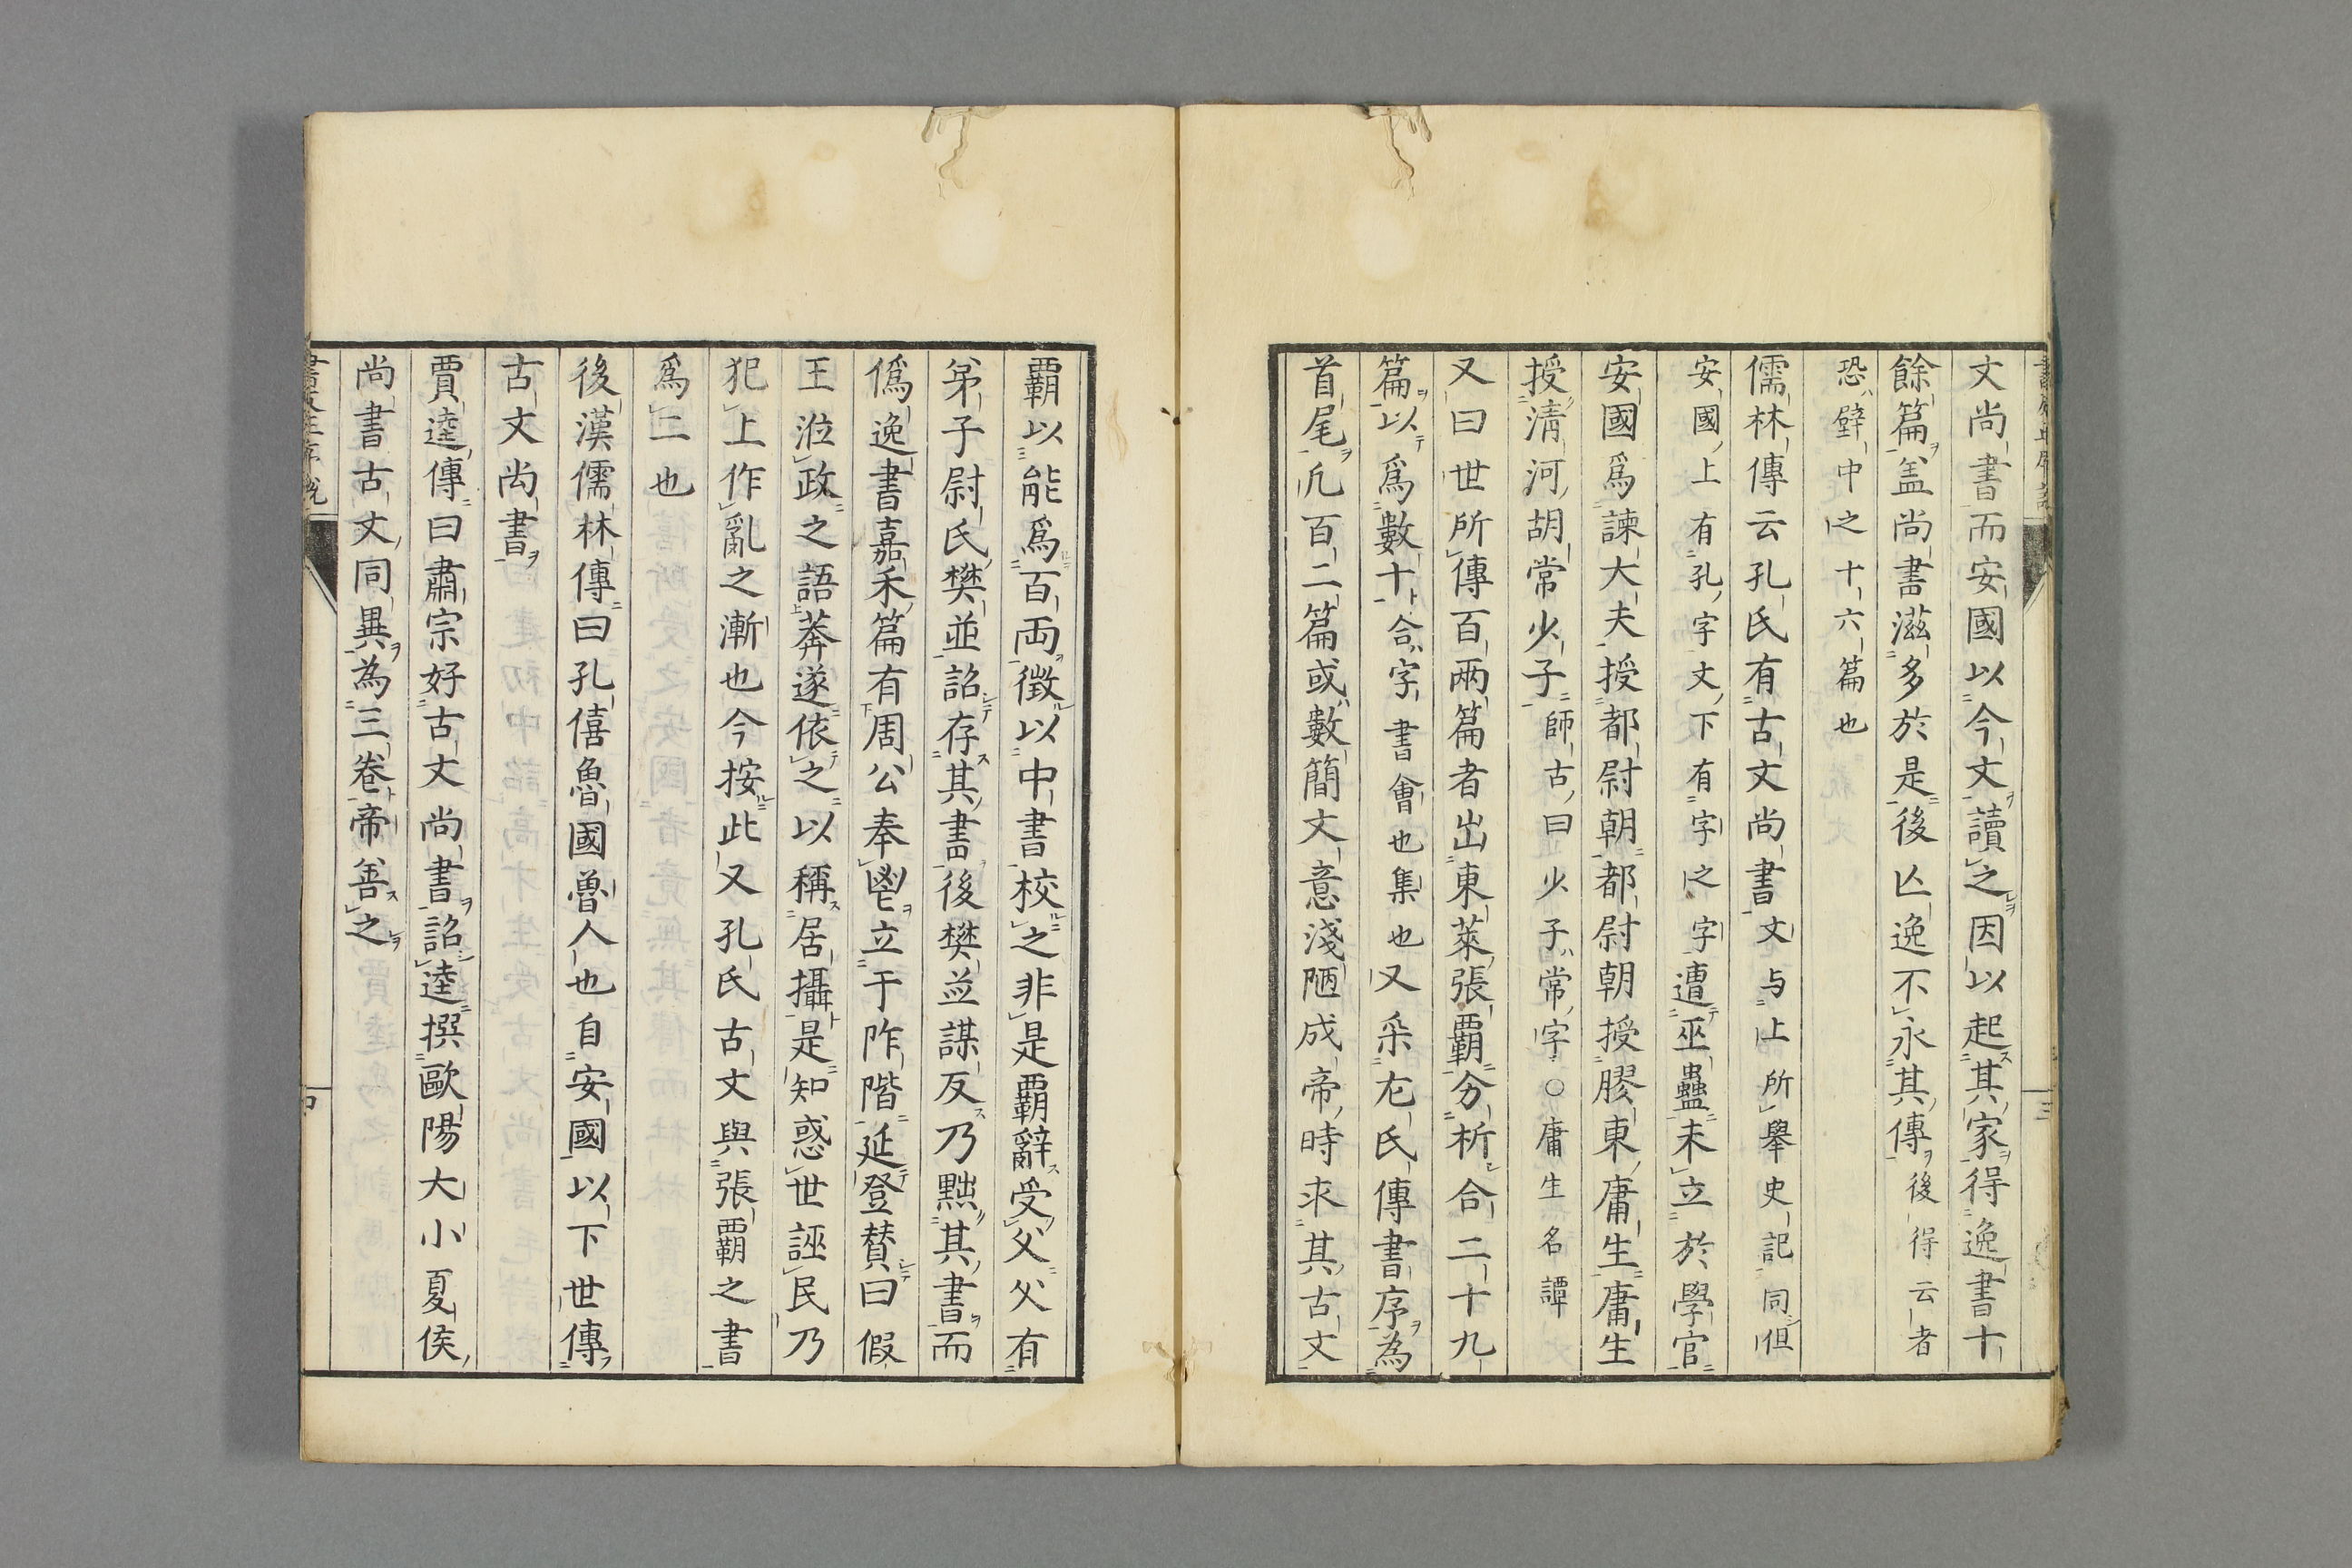 文尚書而安國以今文讀之因以起其家得逸書十
餘篇盖尚書滋多於是後亾逸不永其傳後得云者
恐壁中之十六篇也
儒林傳云孔氏有古文尚書文与上所舉史記同但
安國上有孔字文下有字之字遭巫蠱未立於學官
安國爲諫大夫授都尉朝都尉朝授膠東庸生庸生
授淸河胡常少子師古曰少子常字○庸生名譚
又曰世所傳百兩篇者出東萊張覇分析合二十九
篇以爲數十合字書會也集也又采左氏傳書序為
首尾凡百二篇或數簡文意淺陋成帝時求其古文
覇以能爲百両徵以中書校之非是覇辭受父父有
弟子尉氏樊並詔存其書後樊並謀反乃黜其書而
僞逸書嘉禾篇有周公奉鬯立于阼階延登賛曰假
王涖政之語莽遂依之以稱居攝是知惑世誣民乃
犯上作亂之漸也今按此又孔氏古文與張覇之書
爲二也
後漢儒林傳曰孔僖魯國魯人也自安國以下世傳
古文尚書
賈逵傳曰肅宗好古文尚書詔逵撰歐陽大小夏侯
尚書古文同異為三卷帝善之